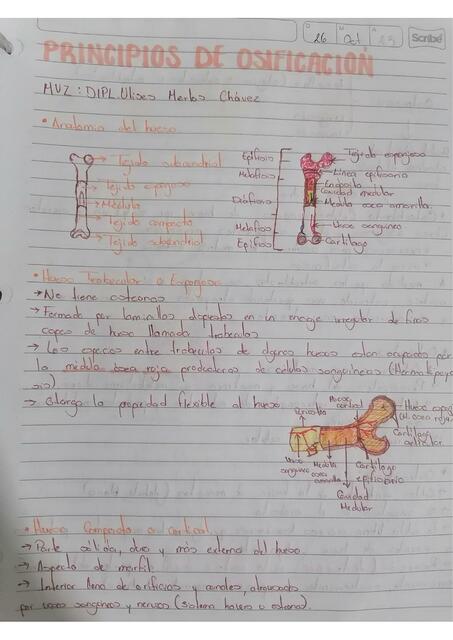 26 Oct 23
Scribe
PRINCIPIOS DE OSIFICACIÓN
MVZ: DIPL Ulises Merlos Chávez
• Anatomía del hueso
Tejido subcondrial
Tejido esponjoso
Médula
Tejido compacto
Tejido subcondrial
Epífisis
Metáfisis
Diáfisis
Metáfisis
Epífisis
Tejido esponjoso
Línea epifisaria
Endostio
Cavidad medular
Médula osea amarilla
Vaso sanguíneo
Cartílago
• Hueso Trabecular o Esponjoso
→ No tiene osteonas
→ Formado por laminillas dispuestas en un encaje irregular de finas
capas de hueso llamada trabeculas
→ Los espacios entre trabeculas de algunos huesos estan ocupados por
la médula osea roja productoras de celulas sanguíneas (Hematopoye
sis)
→ Otorga la propiedad flexible al hueso
Periostio
Hueso cortical
Hueso espon
(M. osea roja)
Cartílago articular
Vaso sanguíneo
Médula osea amarilla
Cartílago epifisiario
Cavidad Medular
• Hueso Compacto o cortical
→ Parte solida, dura y más externa del hueso
→ Aspecto de marfil
→ Interior lleno de orificios y canales, atravesado
por vasos sanguíneos y nervios (sistema havers u osteona).